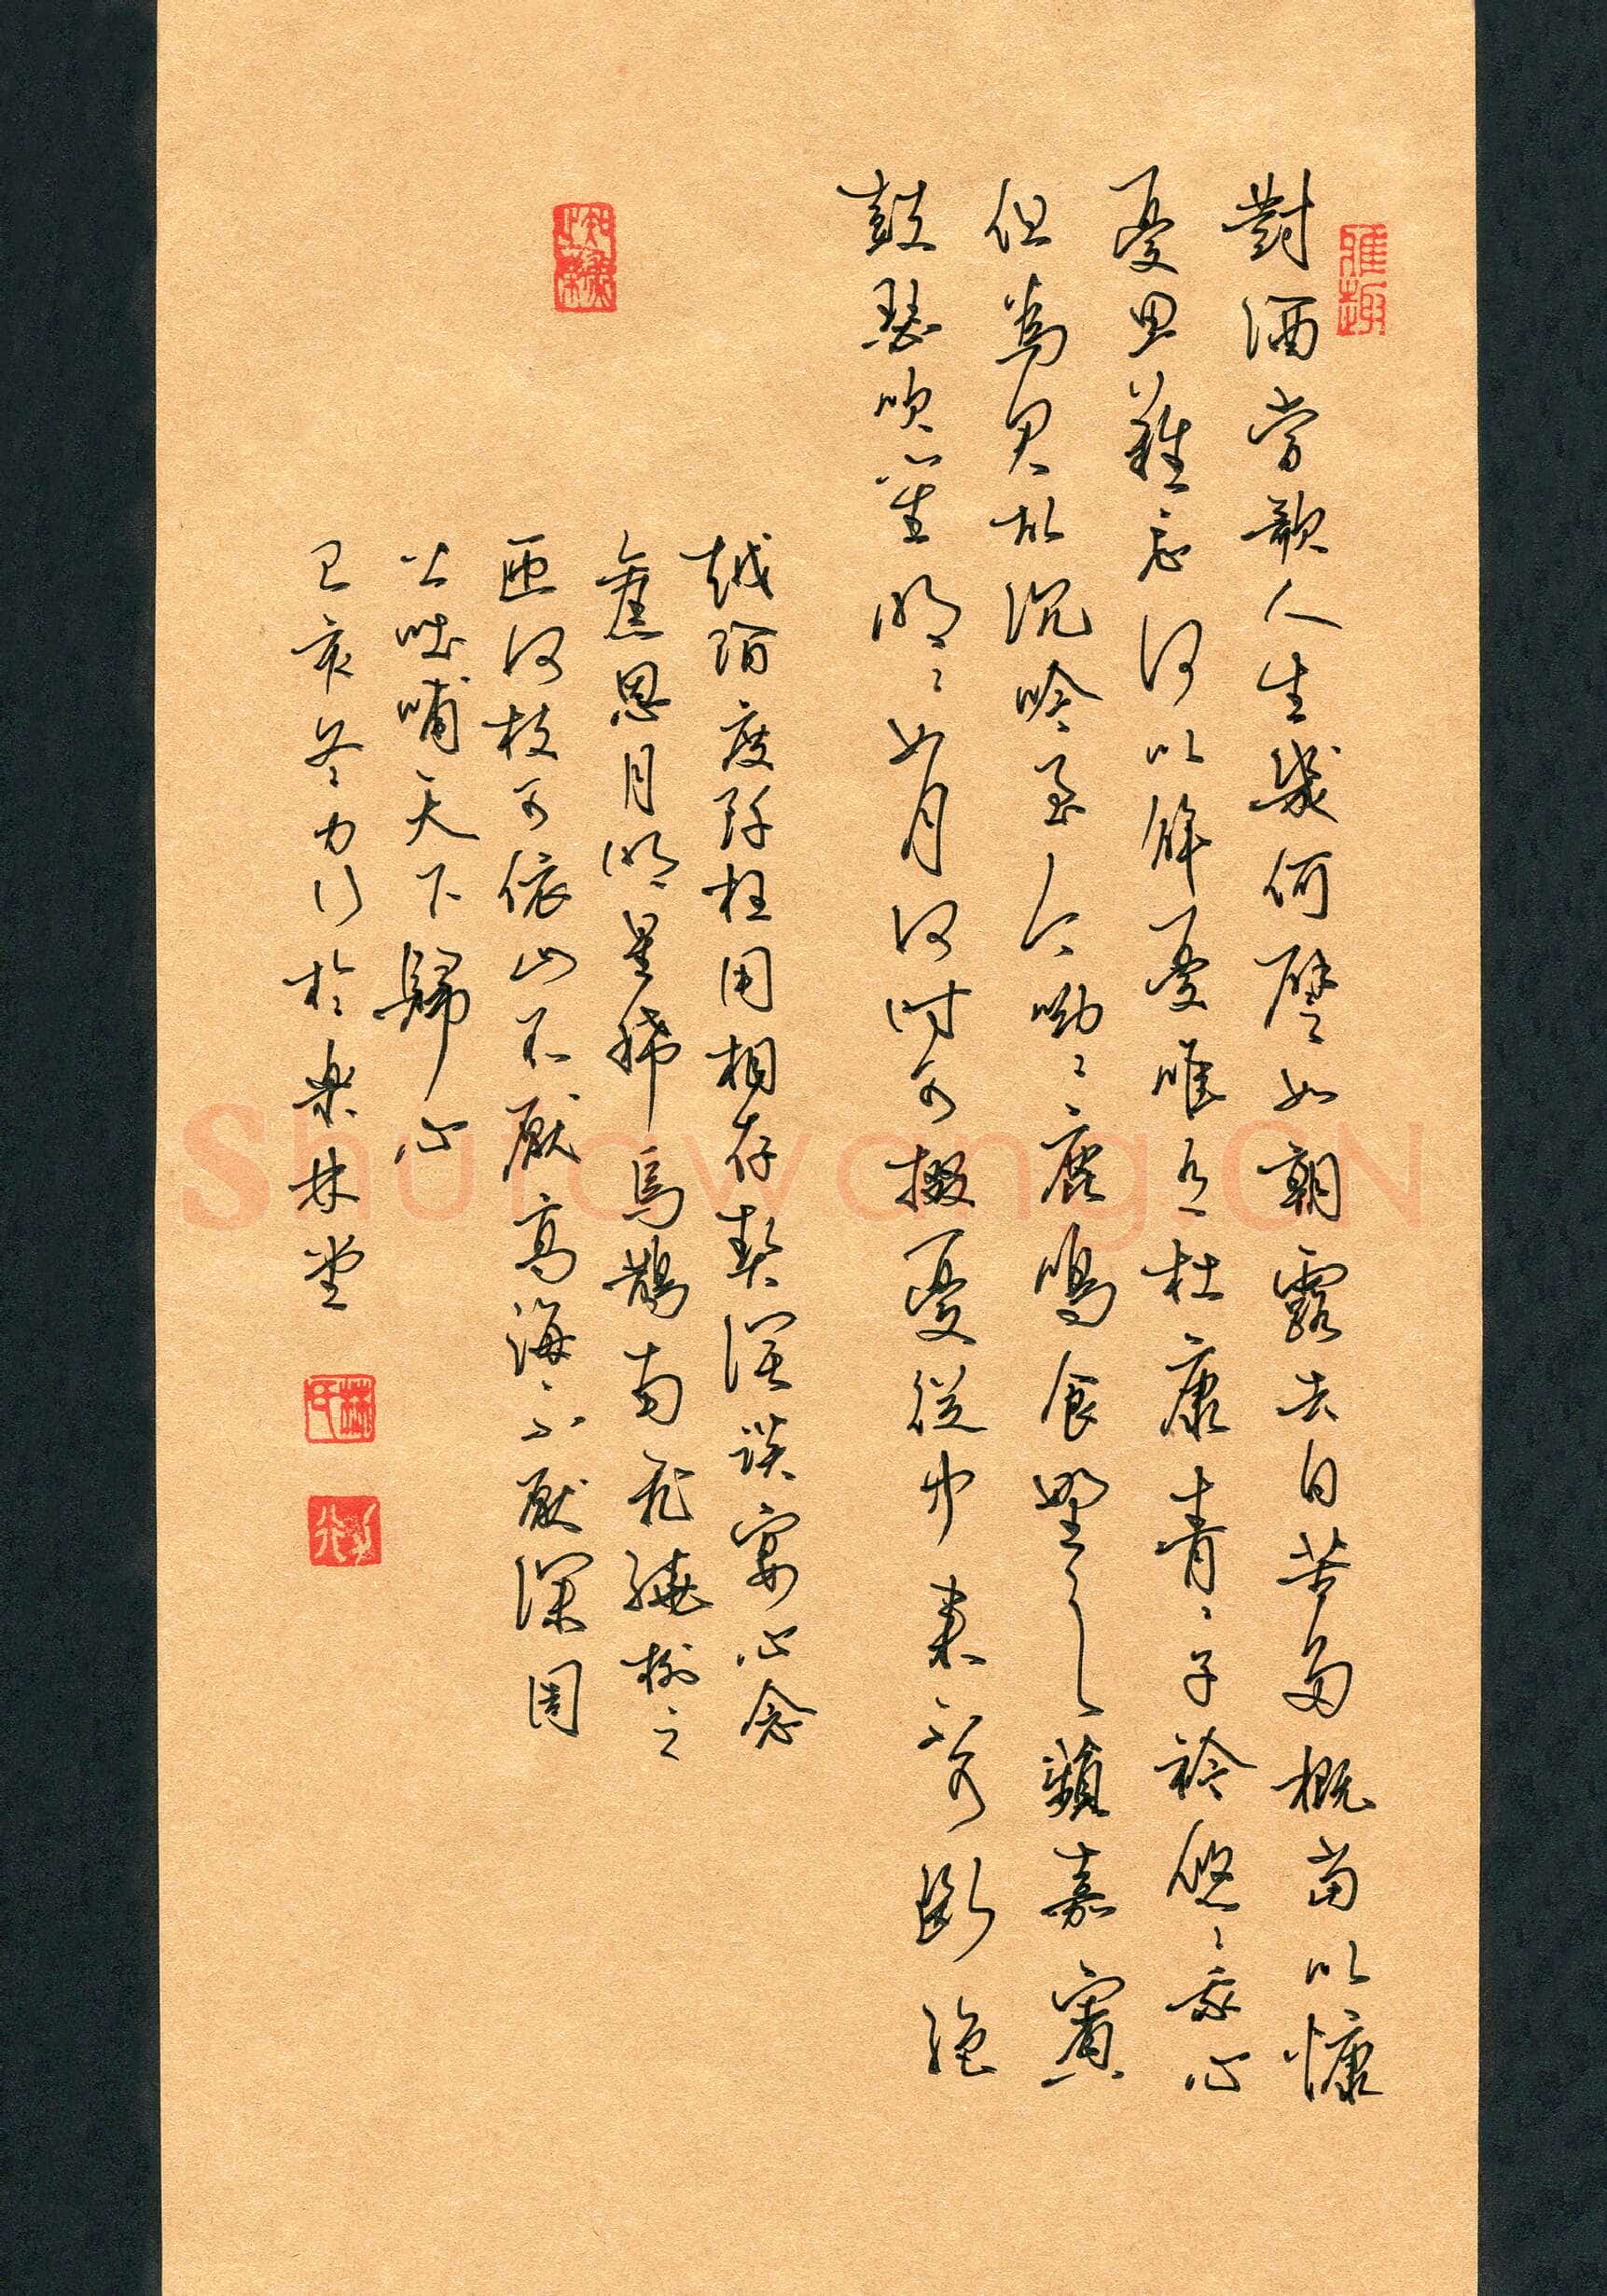 雅趣
對酒當歌人生幾何譬如朝露去日苦多概當以慷
憂思難忘何以解憂唯有杜康青〻子衿悠〻我心
但為君故沉吟至今呦〻鹿鳴食野之蘋嘉賓
鼓瑟吹笙明〻如月何時可掇憂從中來不可斷絕
越陌度阡枉用相存契濶談宴心念
舊恩月明星稀烏鵲南飛繞樹三
匝何枝可依山不厭高海不厭深周
公吐哺天下歸心
己亥冬力行於樂林堂
林氏
力行
Shufawang.CN